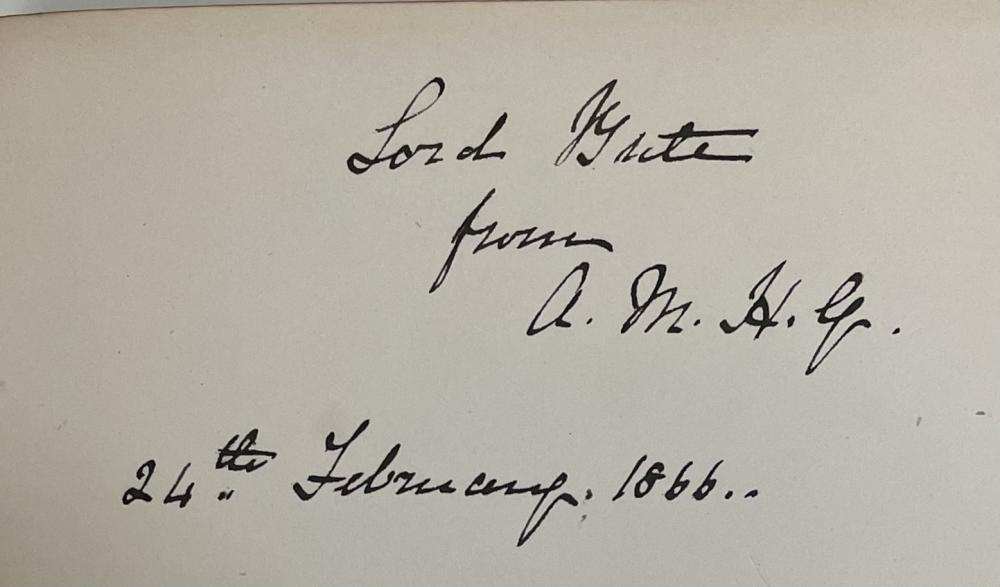 Lord Bute
from
A. M. H. G.
24th February. 1866..